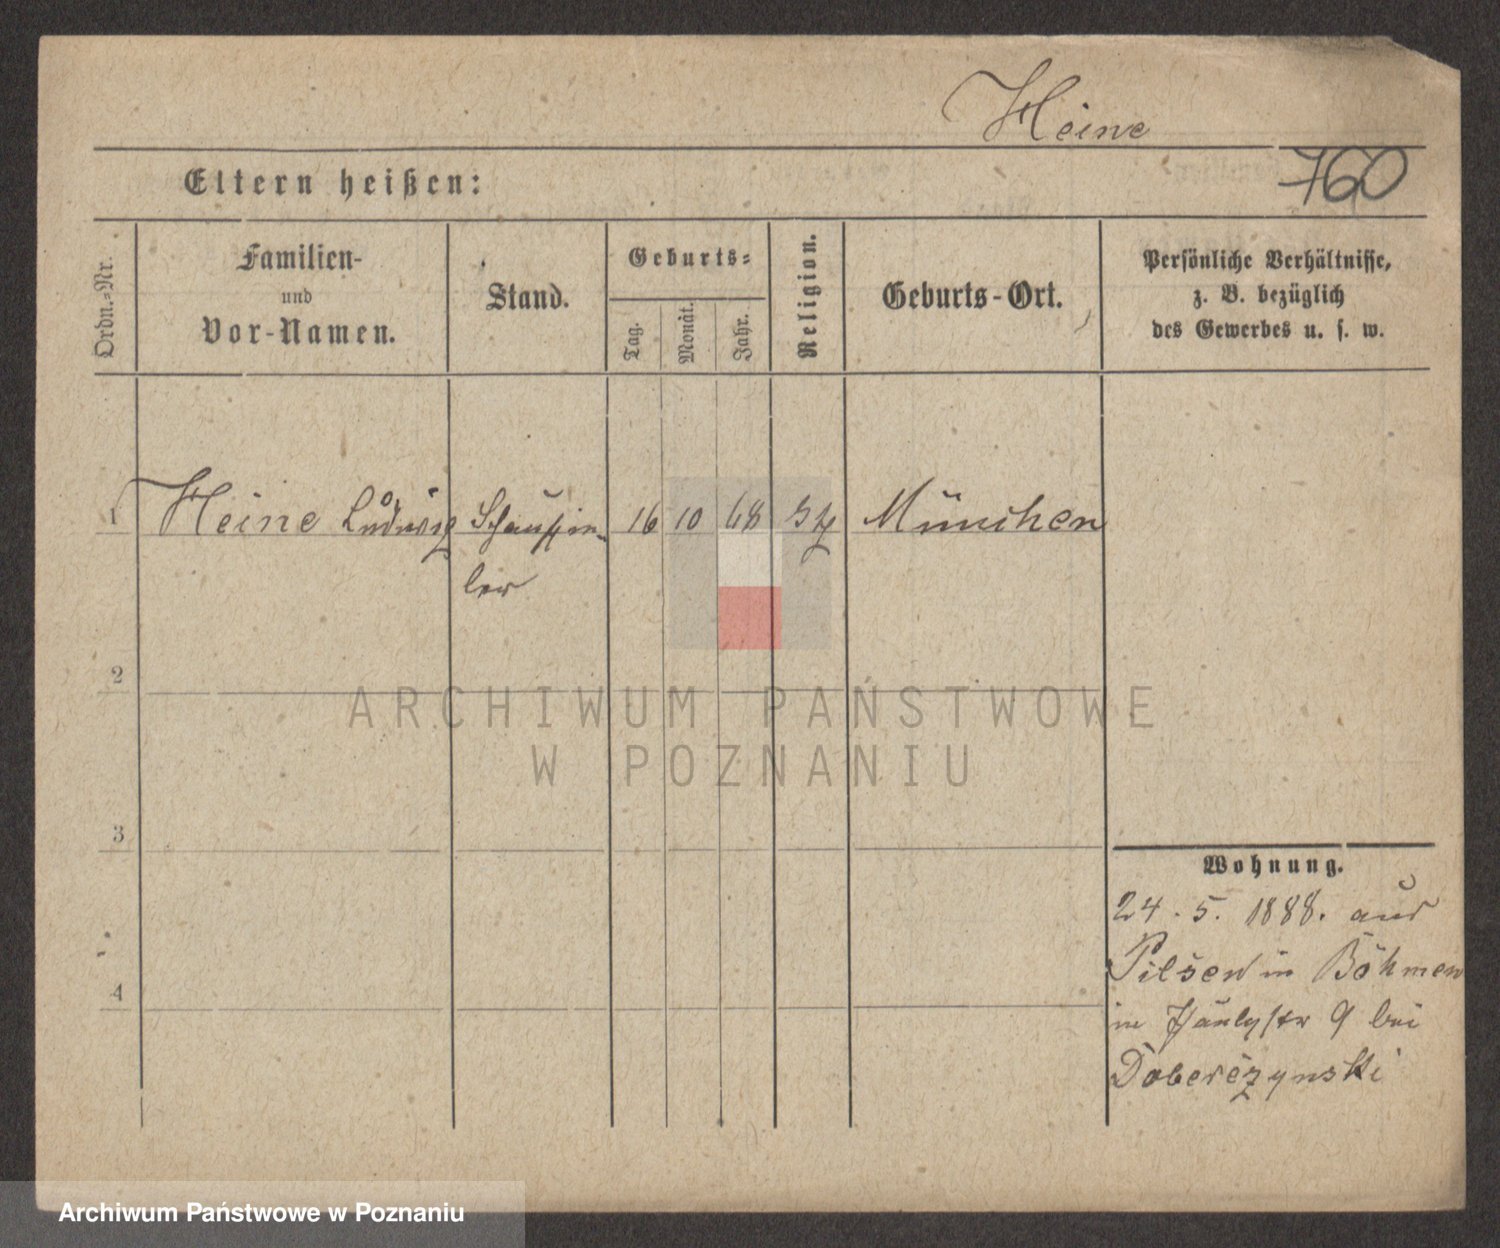 Heine
Eltern heißen:
760
Ordn.-Nr.
Familien-
und
Vor-Namen.
Stand.
Geburts-
Tag.
Monat.
Jahr.
Religion.
Geburts-Ort.
Persönliche Verhältnisse,
z. B. bezüglich
des Gewerbes u. s. w.
1 Heine Ludwig Schauspie- 16 10 68 München
ler
2
ARCHIWUM PAŃSTWOWE
W POZNANIU
3
Wohnung.
24. 5. 1888. aus
Pilsen in Böhmen
in 9 bei
Doberczynski
4
Archiwum Państwowe w Poznaniu